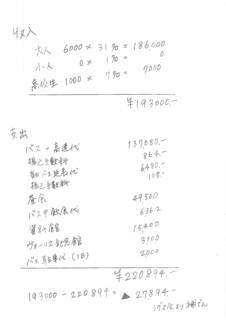 収入
大人 6000 × 31名 = 186,000
小人 0 × 1名 = 0
高校生 1000 × 7名 = 7000
¥193000.-
支出
バス + 高速代 137,080.-
振込手数料 864.-
6480.-
振込手数料 108.-
昼食 49500
バス中飲食代 6362
15,400
ヴォーリズ記念館 3100
バス駐車代(1台) 2000
¥220894.-
193000 - 220894 = ▲27894.-